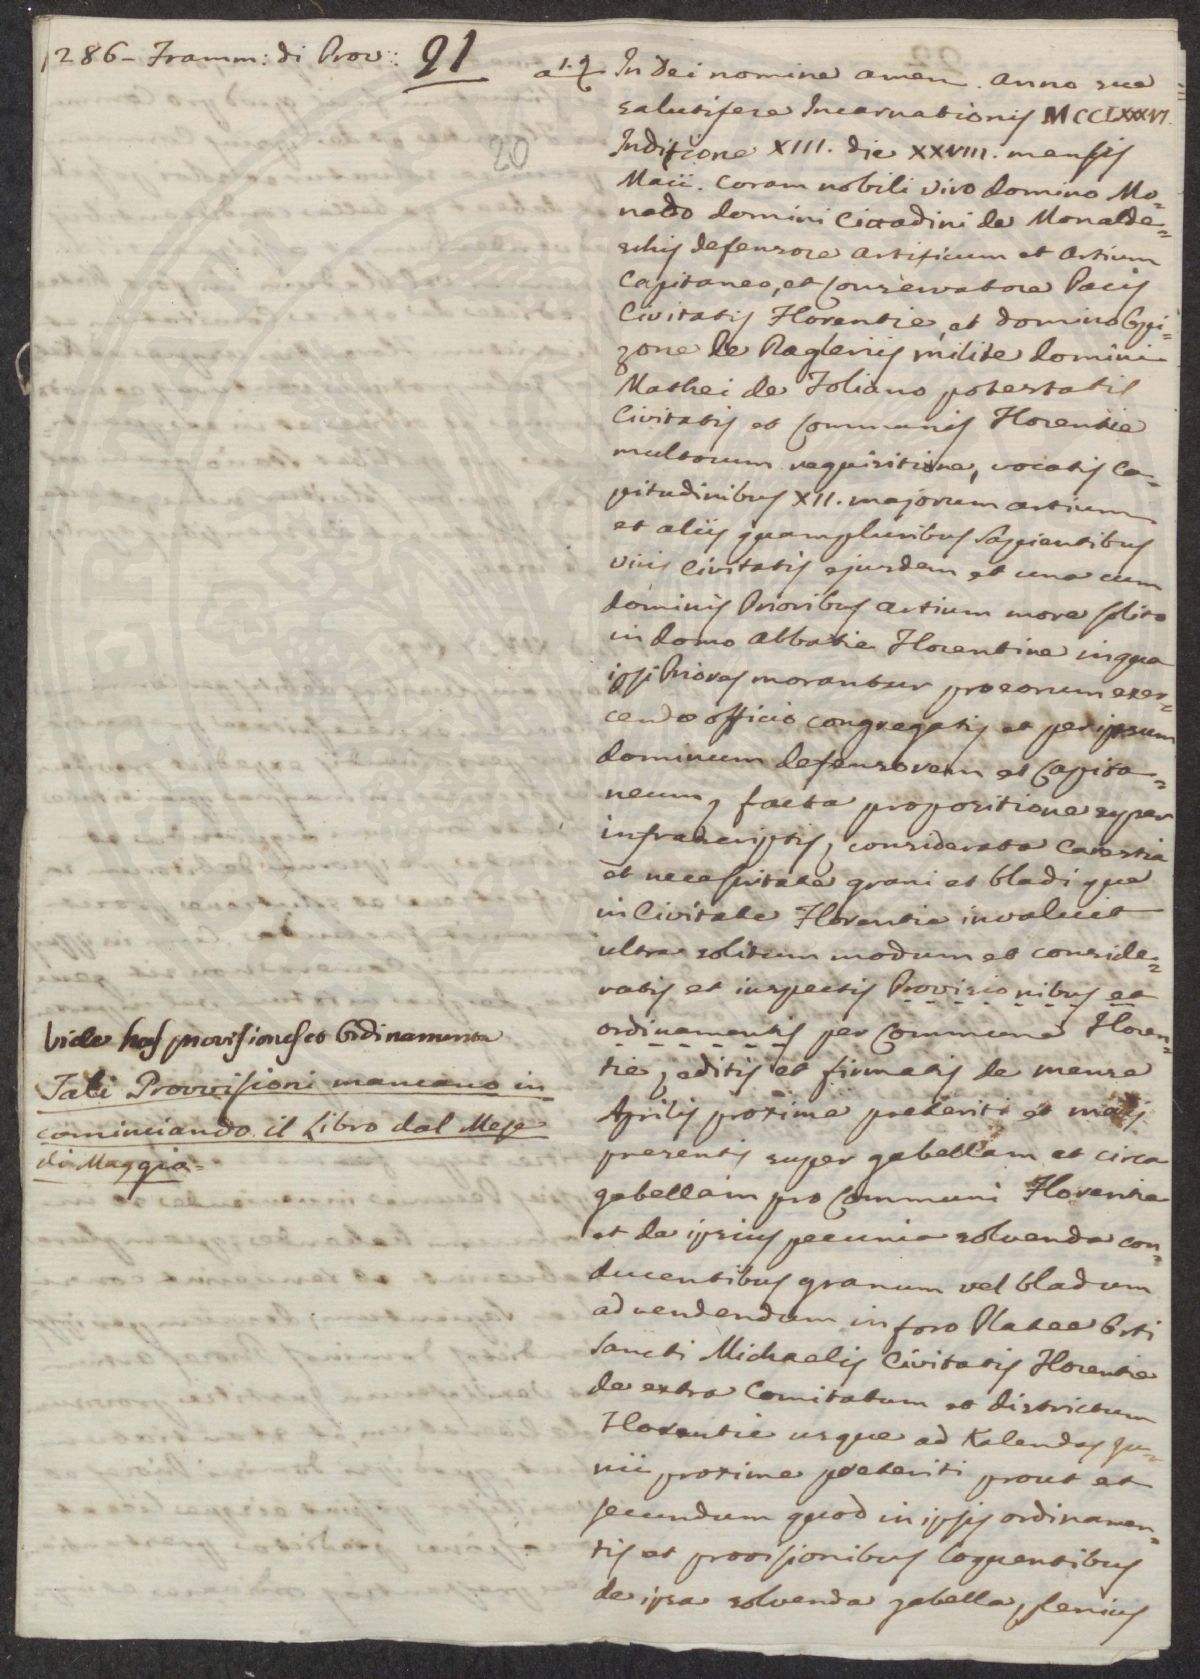 1286 - Framm: di Prov:: 21
20
a 1. 9 In dei nomine amen. anno sue
salutifere Incarnationis MCCLXXXVI.
Inditione XIII. die XXVIII. mensis
Maii. coram nobili viro domino Mo=
naldo domini Cittadini de Monalde=
schis defensore artificum et artium
Capitaneo, et Conservatore Pacis
Civitatis Florentie, et domino Oppi=
zone de Raglenis milite domini
Mathei de Foliano potestatis
Civitatis et Communis Florentie
multorum requisitione, vocatis Ca=
pitudinibus XII. majorum artium
et aliis quampluribus Sapientibus
viris Civitatis ejusdem et una cum
dominis Prioribus artium more solito
in domo Abbatie Florentine in qua
ipsi Priores morantur pro eorum exer=
cendo officio congregatis et per ipsum
dominum defensorem et Capita=
neum, facta propositione super
infrascriptis, considerata Carestia
et necessitate grani et bladi que
in Civitate Florentie invaluit
ultra solitum modum et conside=
ratis et inspectis Provisionibus et
ordinamentis per Commune Floren=
tie, editis et firmatis de mense
Aprilis proxime preteriti et maij
presentis super gabellam et circa
gabellam pro Communi Florentie
et de ipsius pecunia solvenda con=
ducentibus granum vel bladum
ad vendendum in foro Platee Orti
Sancti Michaelis Civitatis Florentie
de extra Comitatum et districtum
Florentie usque ad Kalendas Ju=
nii proxime preteriti prout et
secundum quod in ipsis ordinamen=
tis et provisionibus loquentibus
de ipsa solvenda gabella, plenius
Vide has provisiones et Ordinamenta
Tali Provvisioni mancano in=
cominciando il Libro dal Mese
di Maggio=